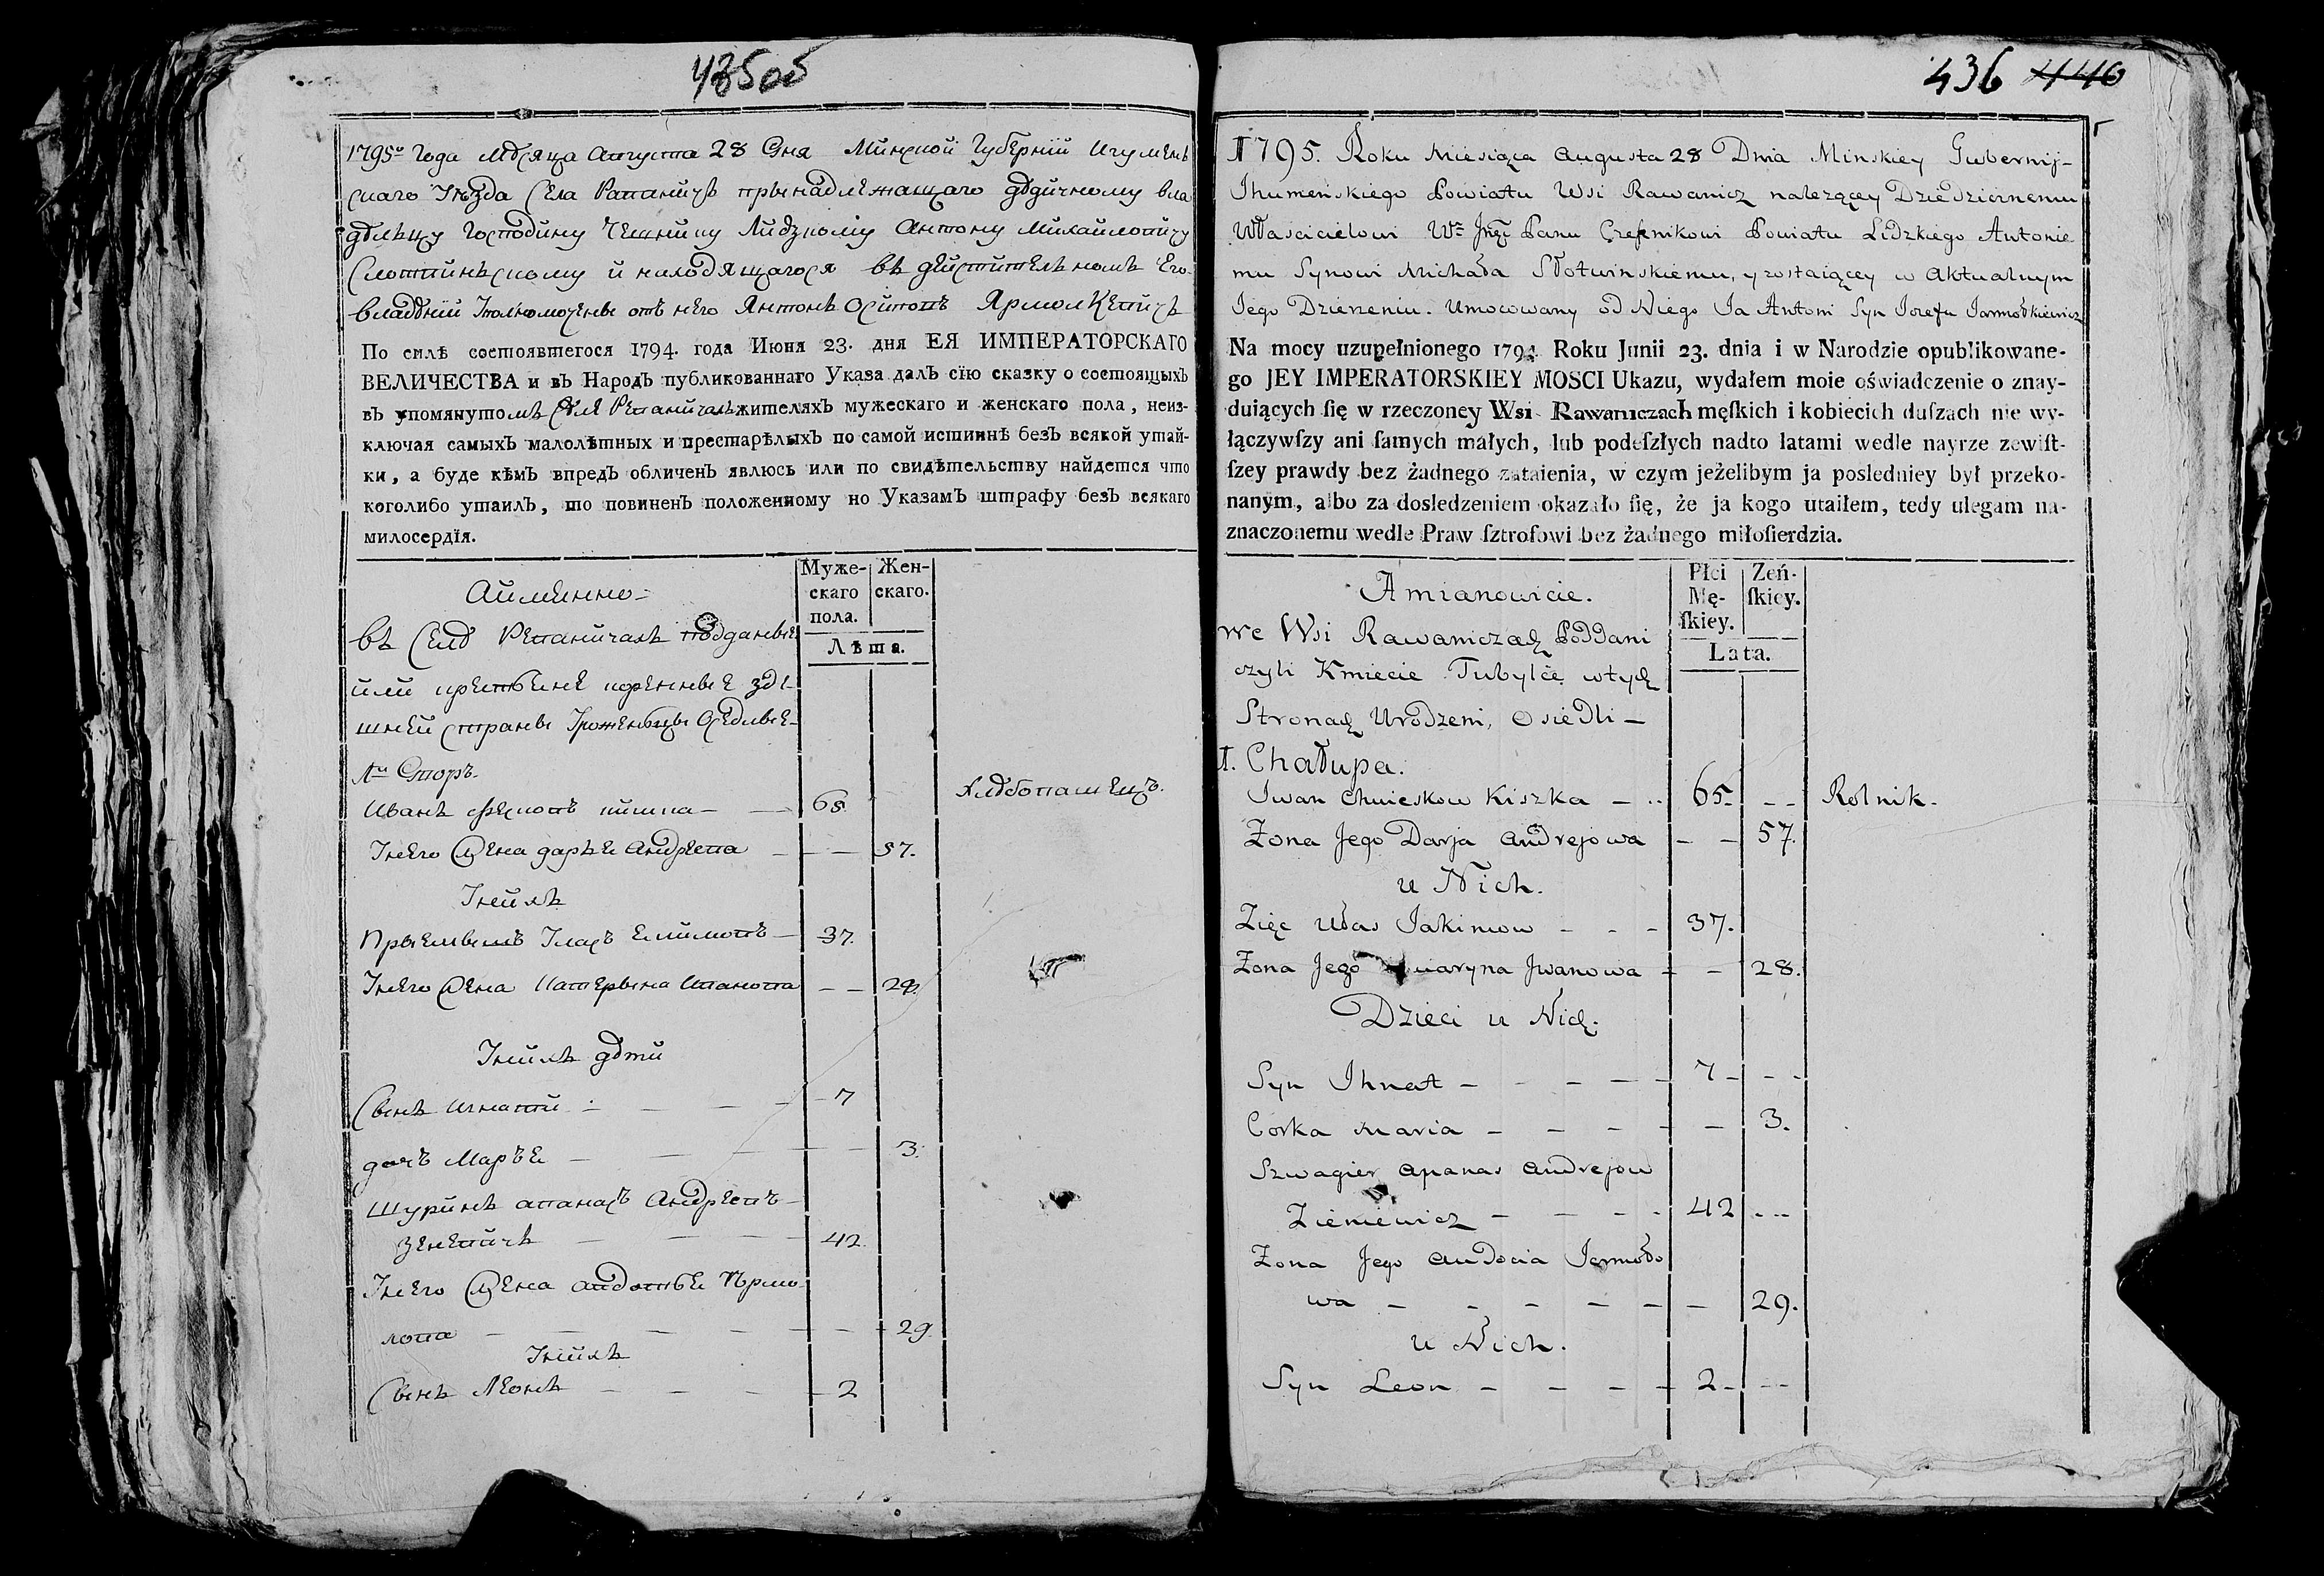 435об
1795го Года Мѣсяца Августа 28 Дня Минской Губерніи Игумен
скаго Уѣзда Села Раваничъ принадлежащаго дѣдичному вла
дѣлцу Господину Чешнику Лидзкому Антону Михайловичу
Слотвинскому и находящагося въ действительномъ Его
владѣніи Уполномоченны отъ него Антонъ Осиповъ Ярмолкевичъ
По силѣ состоявшегося 1794. года Июня 23. дня ЕЯ ИМПЕРАТОРСКАГО
ВЕЛИЧЕСТВА и въ Народъ публикованнаго Указа далъ сїю сказку о состоящыхъ
въ упомянутомъ Селѣ Реваничахъ жителяхъ мужескаго и женскаго пола, неиз-
ключая самыхъ малолѣтныхъ и престарѣлыхъ по самой истиннѣ безъ всякой утай-
ки, а буде кѣмъ впредъ обличенъ явлюсь или по свидѣтельству найдется что
коголибо утаилъ, то повиненъ положенному по Указамъ штрафу безъ всякаго
милосердїя.
Аименно
Муже-
скаго
пола.
Жен-
скаго.
Лѣта.
въ Селѣ Реваничахъ подданые
или крестьяне коренные здѣ-
шней страны Уроженьцы Оседлые
1й Дворъ.
Иванъ Фесковъ кишка — — 65. Хлѣбопашецъ.
Унего Жена дарья Андреева — — — 57.
Унихъ
Прыемышъ Уласъ Екимовъ — 37.
Унего Жена Катерына Иванова — — 29.
Унихъ дѣти
Сынъ Игнатій — — — 7
дочъ Маръя — — — — — 3.
Шуринъ апанасъ Андреевъ —
Зеневичъ — — — 42.
Унего Жена авдотья Ярмо-
лова — — — — — — 29.
Унихъ
Сынъ Леонъ — — — — 2
436 440
1795. Roku Miesiąca Augusta 28 Dnia Minskiey Gubernij-
Ihumeńskiego Powiatu Wsi Rawanicz należącey Dziedzicznemu
Włascicielowi Wo Jmci Panu Czesnikowi Powiatu Lidzkiego Antonie
mu Synowi Michała Słotwinskiemu, y zostaiącey w Aktualnym
Jego Dzierzeniu. Umocowany od Niego Ja Antoni Syn Jozefa Jarmołkiewicz
Na mocy uzupełnionego 1794. Roku Junii 23. dnia i w Narodzie opublikowane-
go JEY IMPERATORSKIEY MOSCI Ukazu, wydałem moie oświadczenie o znay-
duiących ſię w rzeczoney Wsi Rawaniczach męſkich i kobiecich duſzach nie wy-
łączywſzy ani ſamych małych, lub podeſzłych nadto latami wedle nayrze zewiſt-
ſzey prawdy bez żadnego zataienia, w czym jeżelibym ja posledniey był przeko-
nanym, albo za dosledzeniem okazało ſię, że ja kogo utaiłem, tedy ulegam na-
znaczonemu wedle Praw ſztrofowi bez żadnego miłoſierdzia.
Amianowicie.
Płci
Mę-
ſkiey.
Zeń-
ſkiey.
Lata.
we Wsi Rawaniczach Poddani
czyli Kmiecie Tubylce wtych
Stronach Urodzeni, Osiedli —
1. Chałupa.
Iwan Chwieskow Kiszka — .. 65. — — Rolnik.
Żona Jego Darja Andrejowa — — 57.
u Nich.
Zięc Ułas Jakimow — — — 37.
Żona Jego Iwanowa — — 28.
Dzieci u Nich.
Syn Ihnat — — — — — 7 — — —
Corka Maria — — — — — — 3.
Szwagier Apanas Andrejow
Zieniewicz — — — — 42 — —
Żona Jego Audocia Jermoło
wa — — — — — — 29.
u Nich.
Syn Leon — — — — 2 — — —